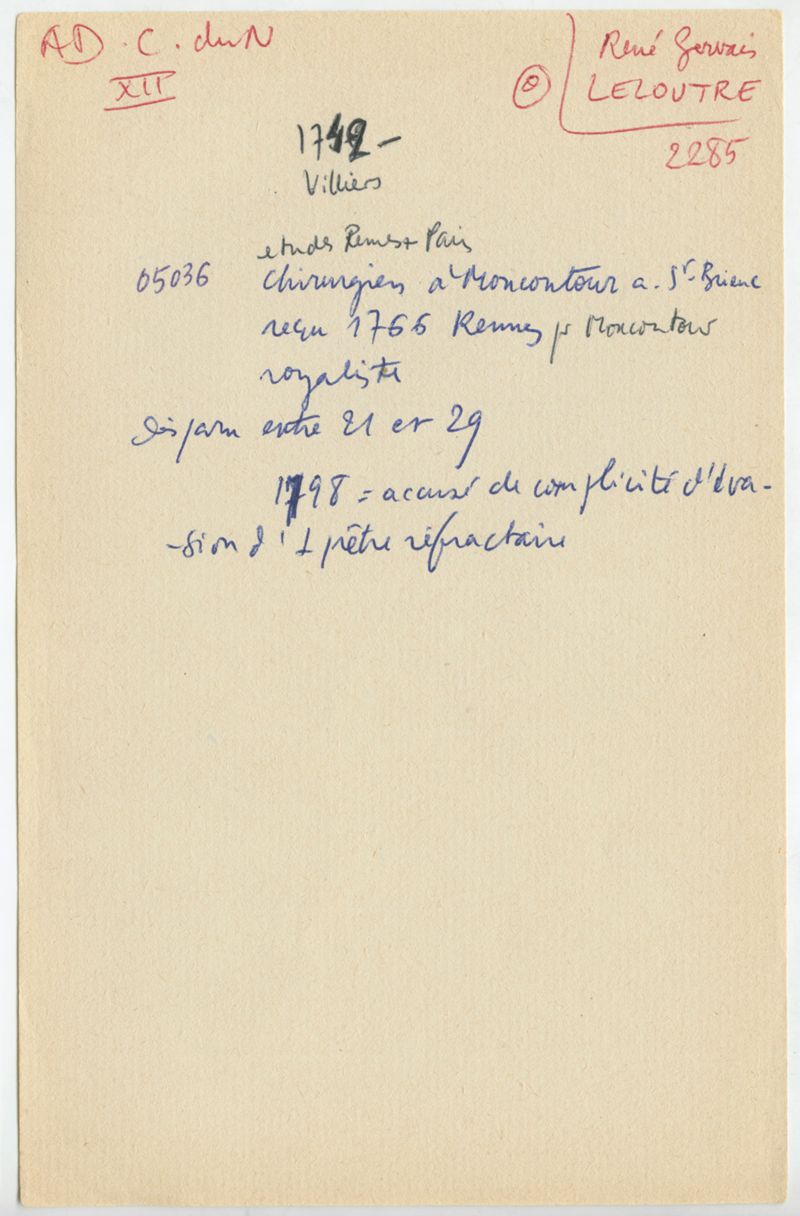 AD. C. du N
XII
René Gervais
LELOUTRE
2285
1742 -
Villiers
etudes Rennes + Paris
05036 chirurgien à Moncontour a. St-Brieuc
reçu 1766 Rennes pr Moncontour
royaliste
disparu entre 21 et 29
1798 = accusé de complicité d'éva-
-sion d'1 prêtre réfractaire